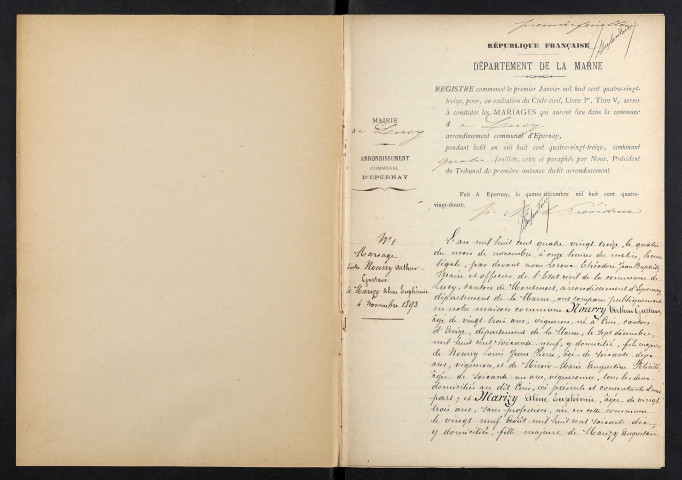 première feuillet
RÉPUBLIQUE FRANÇAISE
DÉPARTEMENT DE LA MARNE
REGISTRE commencé le premier Janvier mil huit cent quatre-vingt-
treize, pour, en exécution du Code civil, Livre Iᵉʳ, Titre V, servir
à constater les MARIAGES qui auront lieu dans la commune
d e Lucy
arrondissement communal d'Epernay,
pendant ledit an mil huit cent quatre-vingt-treize, contenant
quatre feuillets, cotés et paraphés par Nous, Président
du Tribunal de première instance dudit arrondissement.
Fait à Epernay, le quinze décembre mil huit cent quatre-
vingt-douze.
Président
MAIRIE
de Lucy
ARRONDISSEMENT
COMMUNAL
D'EPERNAY
Nº 1
Mariage
Entre Nourry Arthur
Gustave
et Marizy Aline Euphémie
4 Novembre 1893
L'an mil huit cent quatre vingt treize, le quatre
du mois de novembre à onze heures du matin, heure
légale, par devant nous Théodore Jean Baptiste
Maire et officier de l'état civil de la commune de
Lucy, canton de Montmort, arrondissement d'Epernay,
département de la Marne, ont comparu publiquement
en notre maison commune Nourry Arthur Gustave,
âgé de vingt trois ans, vigneron, né à Cuis, canton
d'Avize, département de la Marne, le sept décembre
mil huit cent soixante neuf, y domicilié, fils majeur
de Nourry Louis Jean Pierre, âgé de soixante
ans, vigneron, et de Marie Augustine Félicité
âgée de soixante un ans, vigneronne, tous les deux
domiciliés au dit Cuis, ici présents et consentants d'une
part; et Marizy Aline Euphémie, âgée de vingt
trois ans, sans profession, née en cette commune
le vingt neuf août mil huit cent soixante dix
y domiciliée, fille majeure de Marizy Augustin